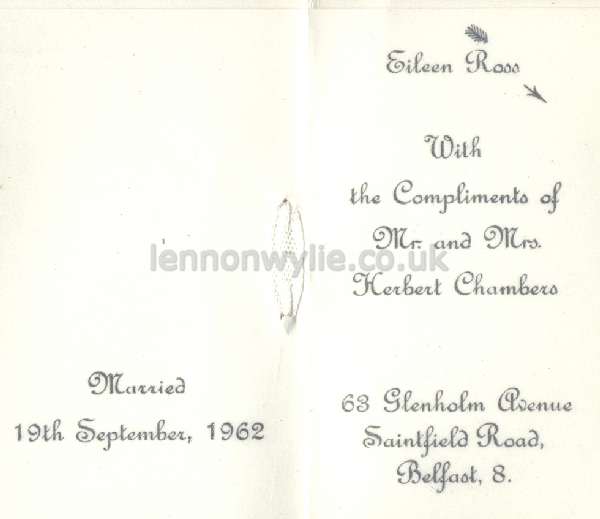 Married
19th September, 1962
Eileen Ross
With
the Compliments of
Mr. and Mrs.
Herbert Chambers
63 Glenholm Avenue
Saintfield Road,
Belfast, 8.
lennonwylie.co.uk